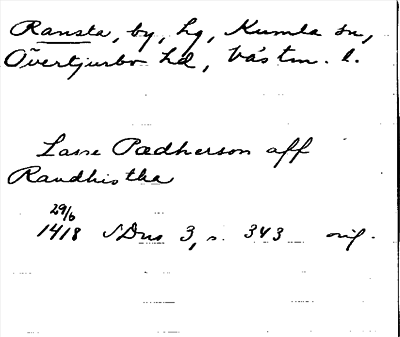 Ransta, by, hg, Kumla sn,
Övertjurbo hd, Västm. l.
Lasse Pædherson aff
Randhistha
29/6
1418 SDns 3, s. 343 orig.